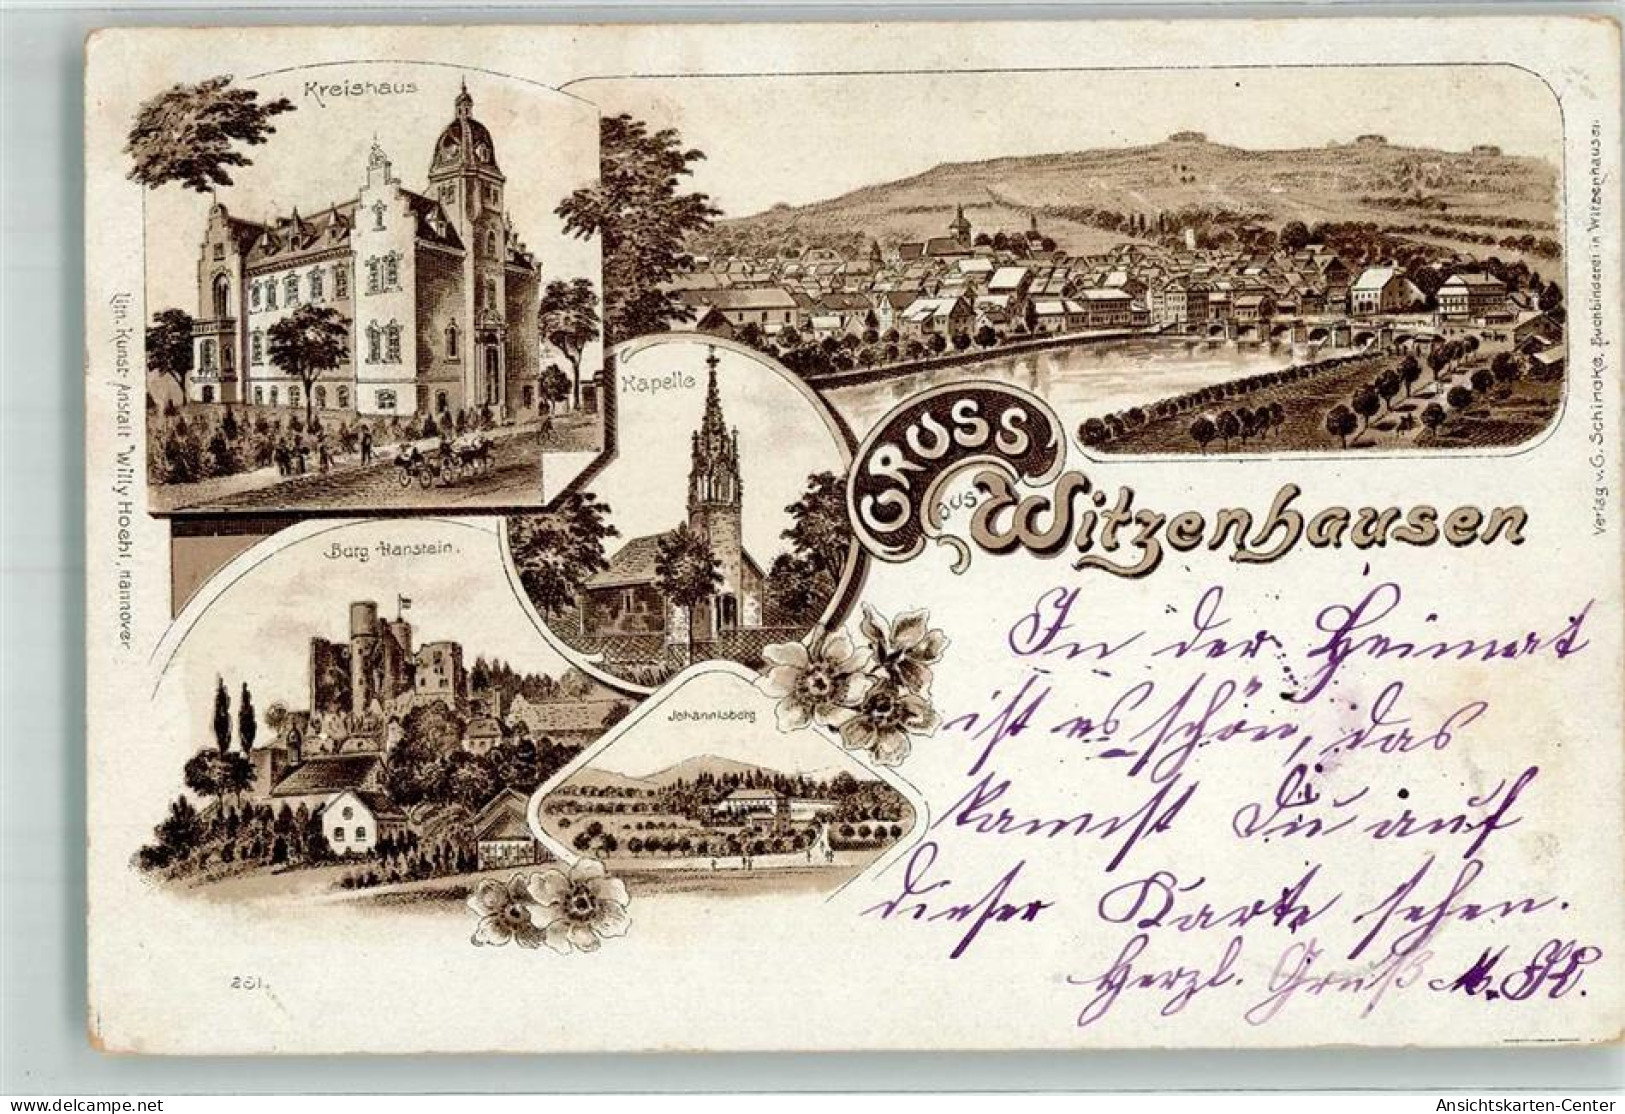 Kreishaus
Kapelle
GRUSS
aus
Witzenhausen
Burg Hanstein.
Johannisberg
In der Heimat
ist es schön, das
kannst Du auf
dieser Karte sehen.
Herzl. Gruß
Lith. Kunst-Anstalt Willy Hoehl, Hannover.
Verlag v. G. Schincke, Buchbinderei in Witzenhausen
delcampe.net
Ansichtskarten-Center